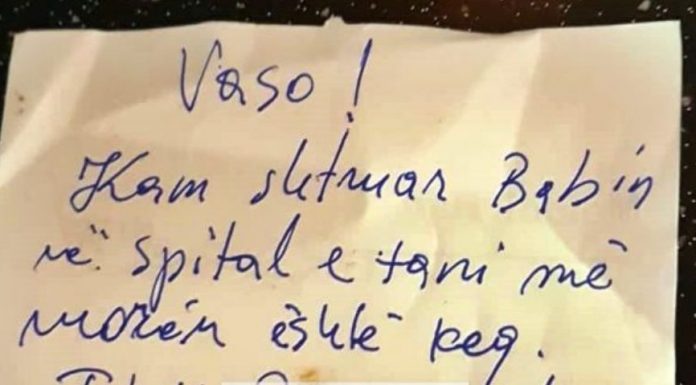 Vaso!
Kam shtruar Babin
në spital e tani më
morën është keq.